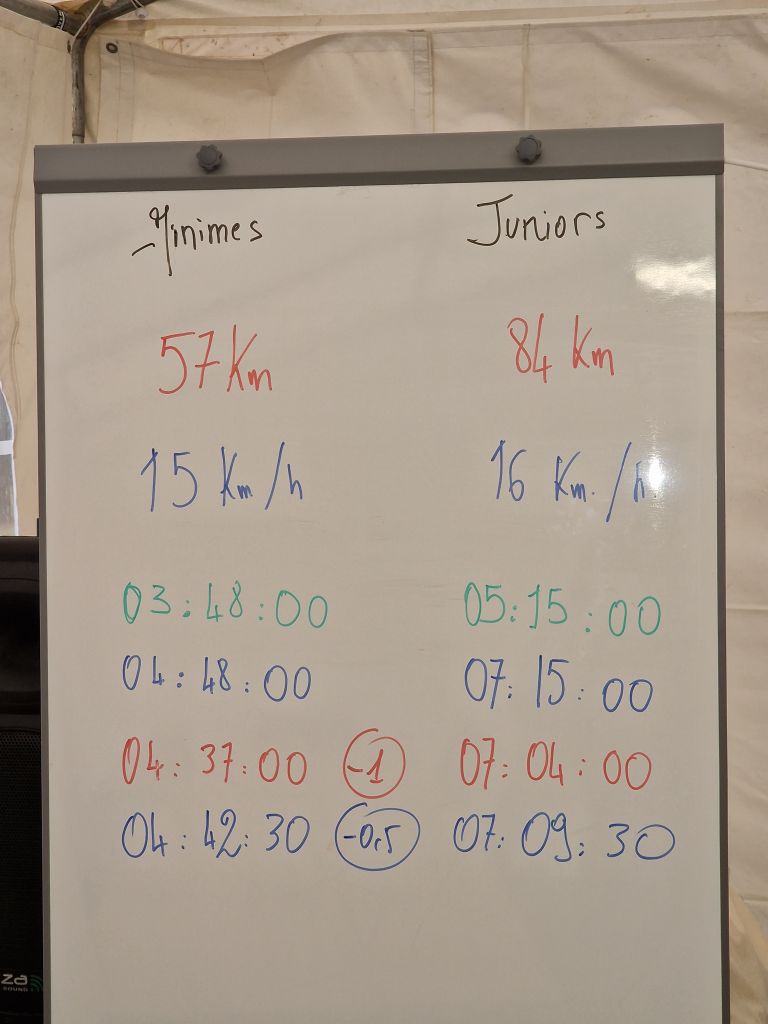 Minimes Juniors
57 Km 84 Km
15 Km/h 16 Km./h
03:48:00 05:15:00
04:48:00 07:15:00
04:37:00 -1 07:04:00
04:42:30 -0,5 07:09:30
za
SOUND